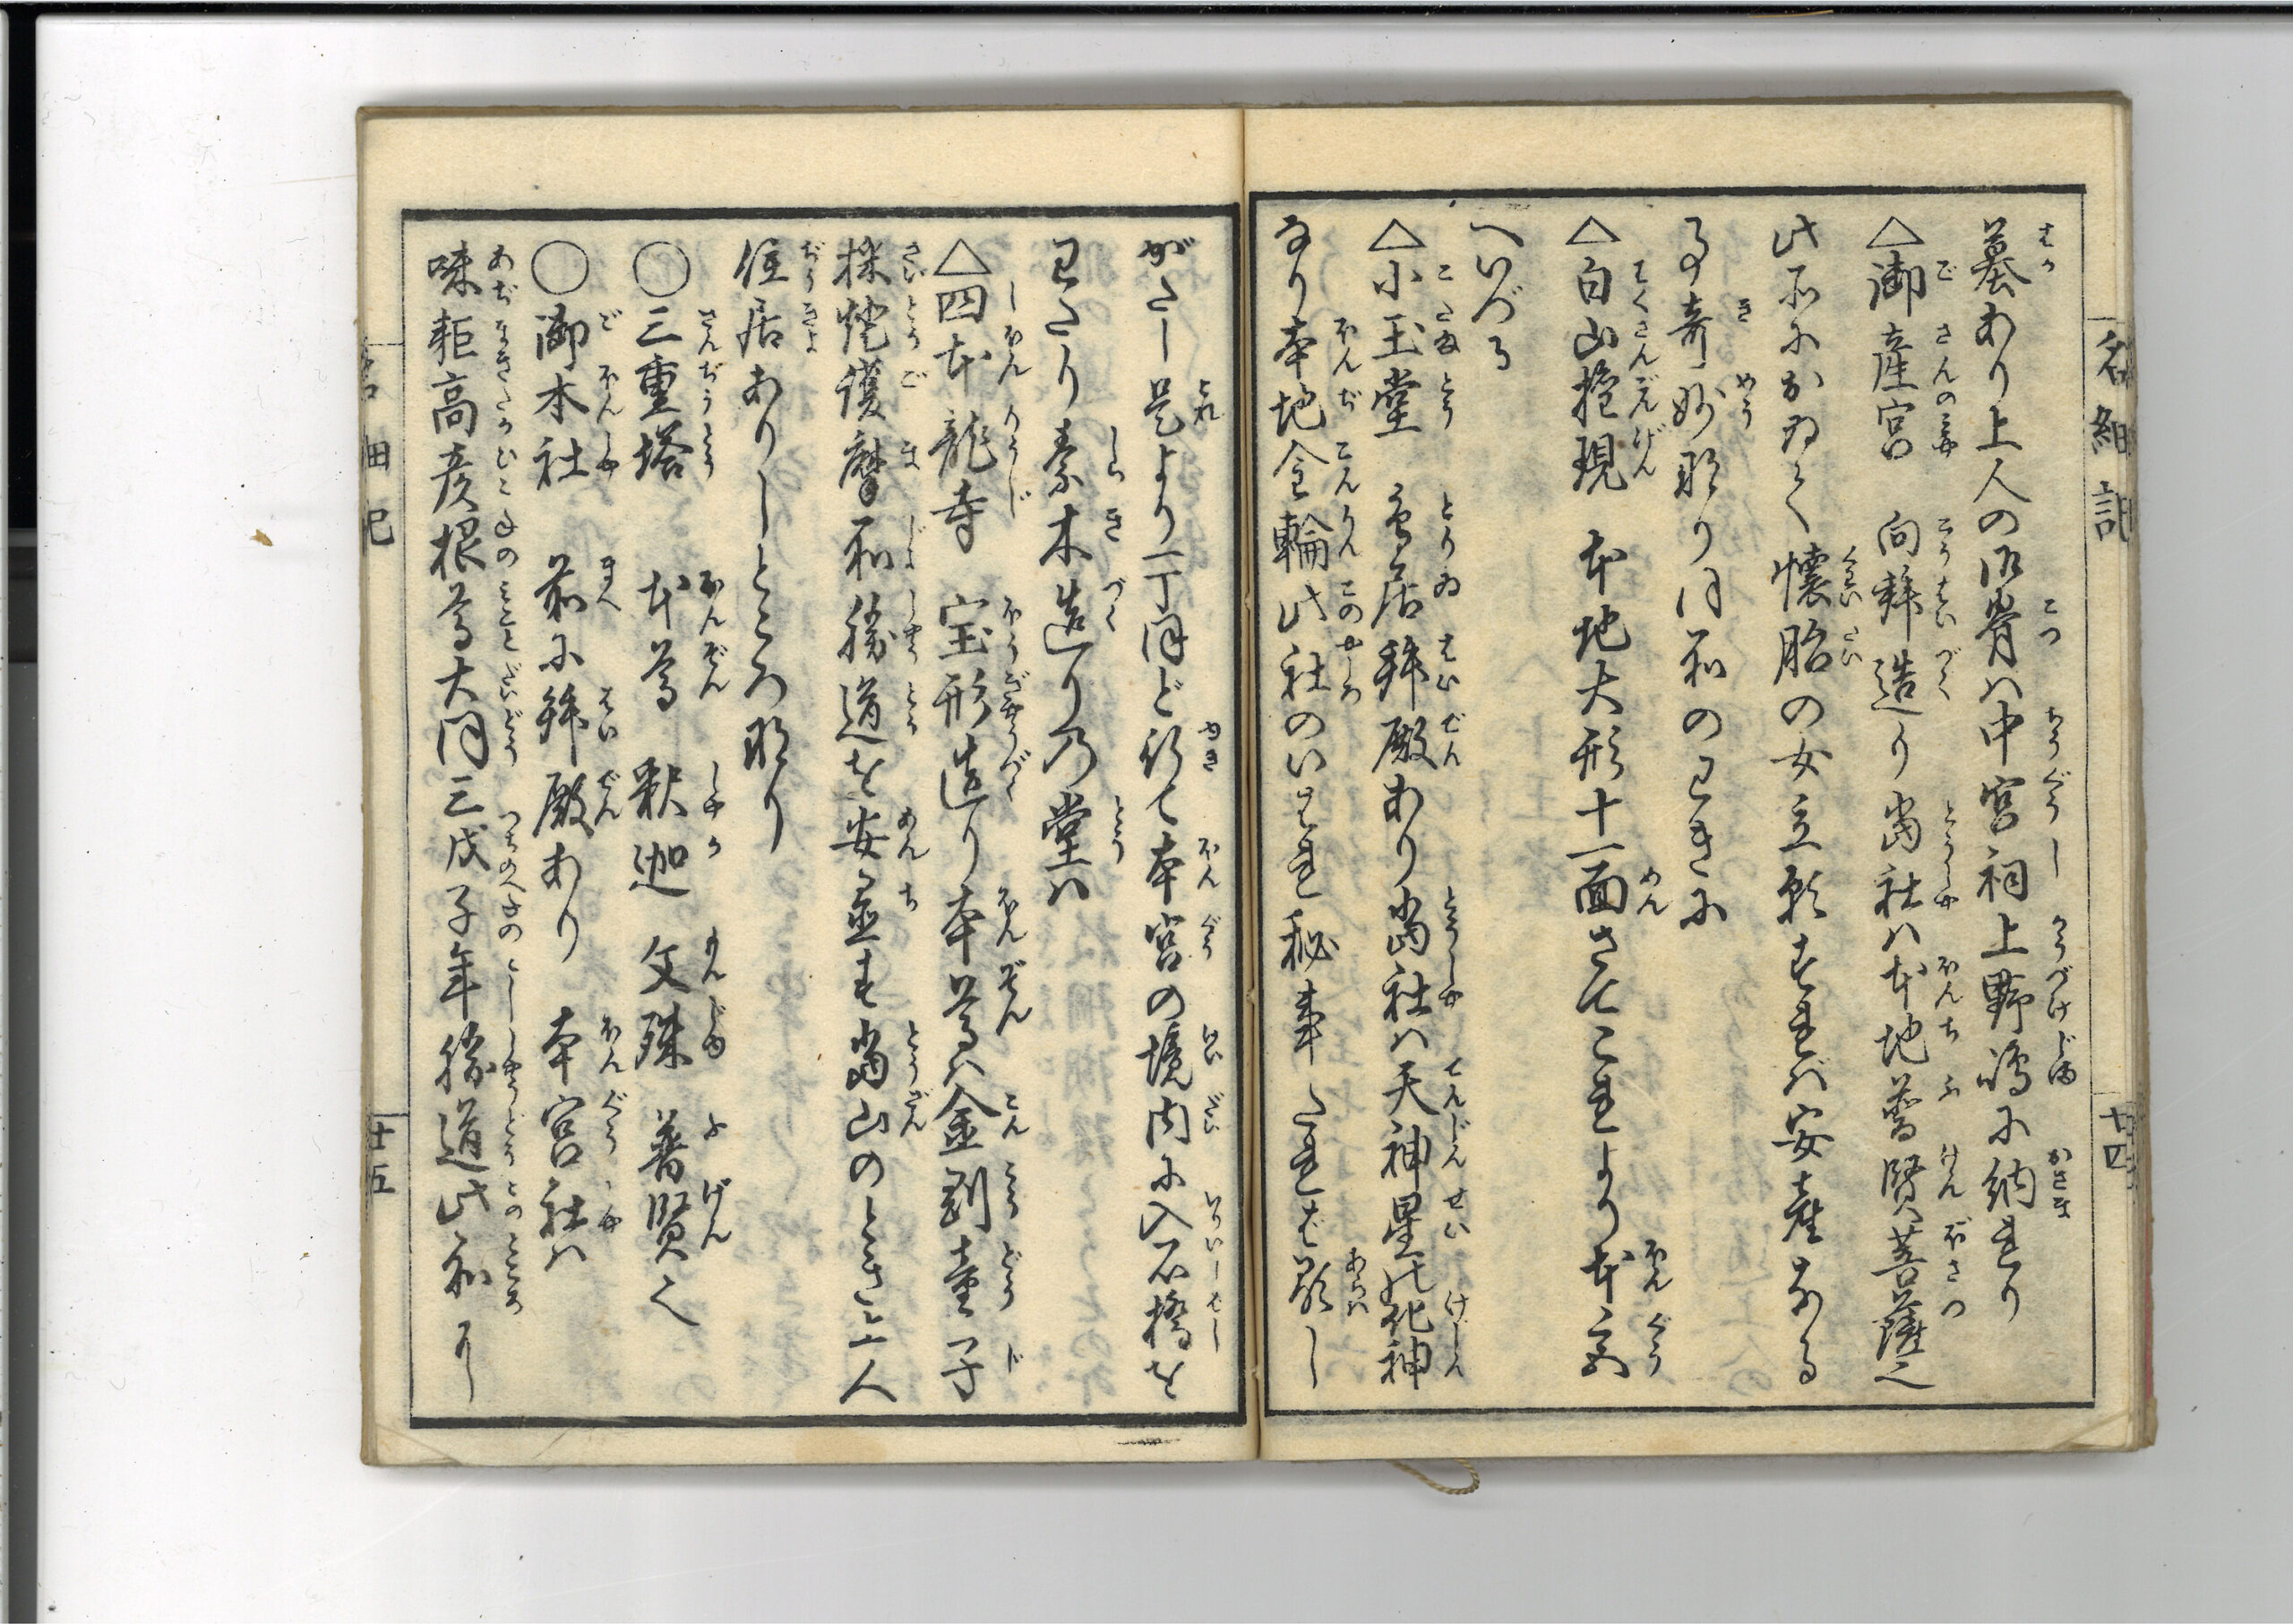 名細記
十四
墓あり上人の御骨ハ中宮祠上野嶋に納れり
△御産宮 向拝造り 当社ハ本地普賢菩薩也
此所におゐて懐胎の女立願すれば安産なる
事奇妙なり同所のわきに
△白山権現 本地大形十一面さてこれより本宮
へいづる
△小玉堂 鳥居拝殿あり当社ハ天神星の化神
なり本地金輪此社のいはれ秘事たれば顕し
がたし是より一丁ほど行て本宮の境内に入石橋を
わたり素木造りの堂ハ
△四本龍寺 宝形造り本尊ハ金剛童子
採燈護摩所勝道を安置す当山のとき上人
住居ありしところなり
○三重塔 本尊 釈迦 文殊 普賢也
○御本社 前に拝殿あり 本宮社ハ
味耜高彦根尊大同三戊子年勝道此所に
名細記
十五